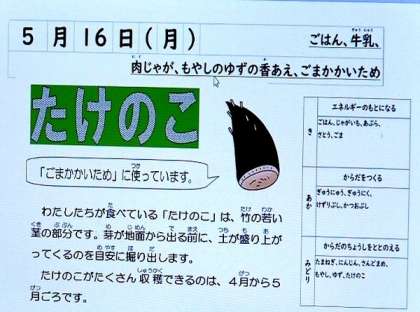 5月16日(月)
ごはん、牛乳、
肉じゃが、もやしのゆずの香あえ、ごまかかいため
たけのこ
「ごまかかいため」に使っています。
わたしたちが食べている「たけのこ」は、竹の若い
茎の部分です。芽が地面から出る前に、土が盛り上が
ってくるのを目安に掘り出します。
たけのこがたくさん収穫できるのは、4月から5
月ごろです。
エネルギーのもとになる
き
ごはん、じゃがいも、あぶら、
さとう、ごま
からだをつくる
あか
ぎゅうにゅう、ぎゅうにく、
けずりぶし、かつおぶし
からだのちょうしをととのえる
みどり
たまねぎ、にんじん、さんどまめ、
もやし、ゆず、たけのこ